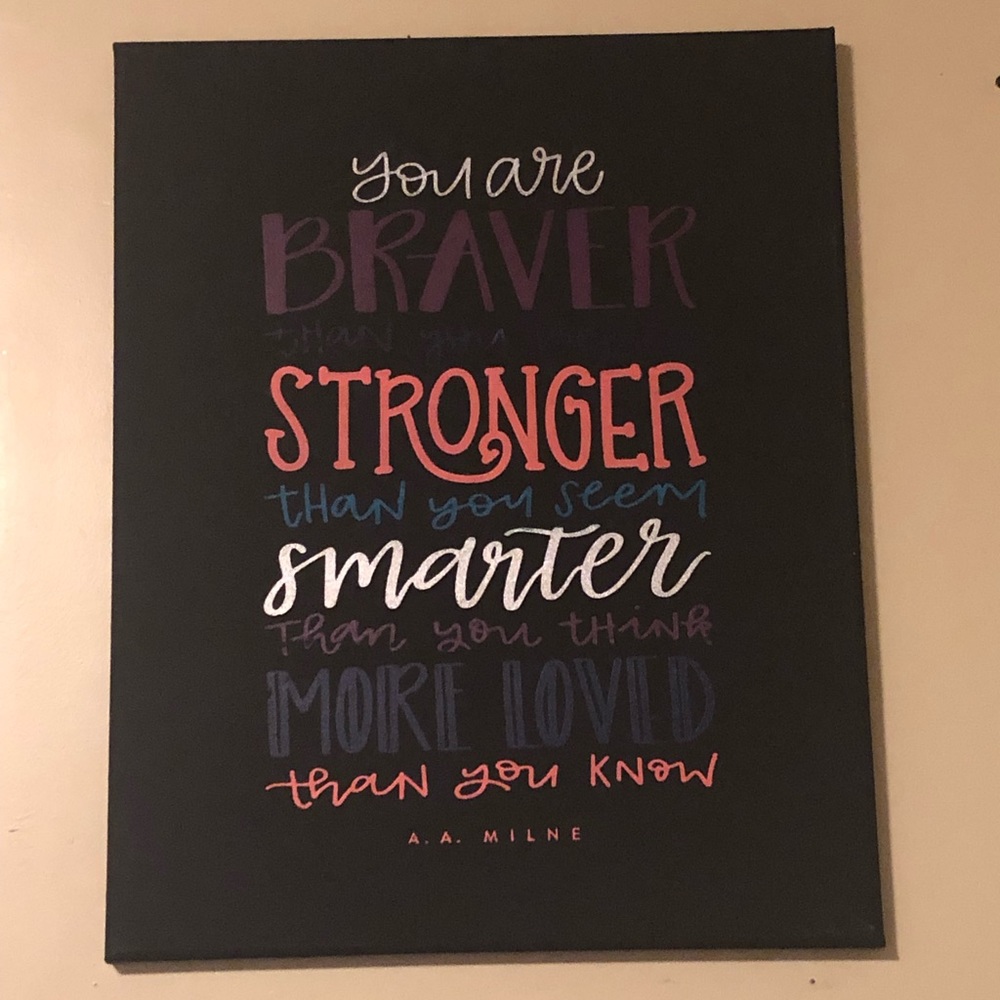 you are
BRAVER
tHaN you
STRONGER
tHaN you seem
smarter
Than you tHiNk
MORE LOVED
thaN you KNow
A. A. MILNE